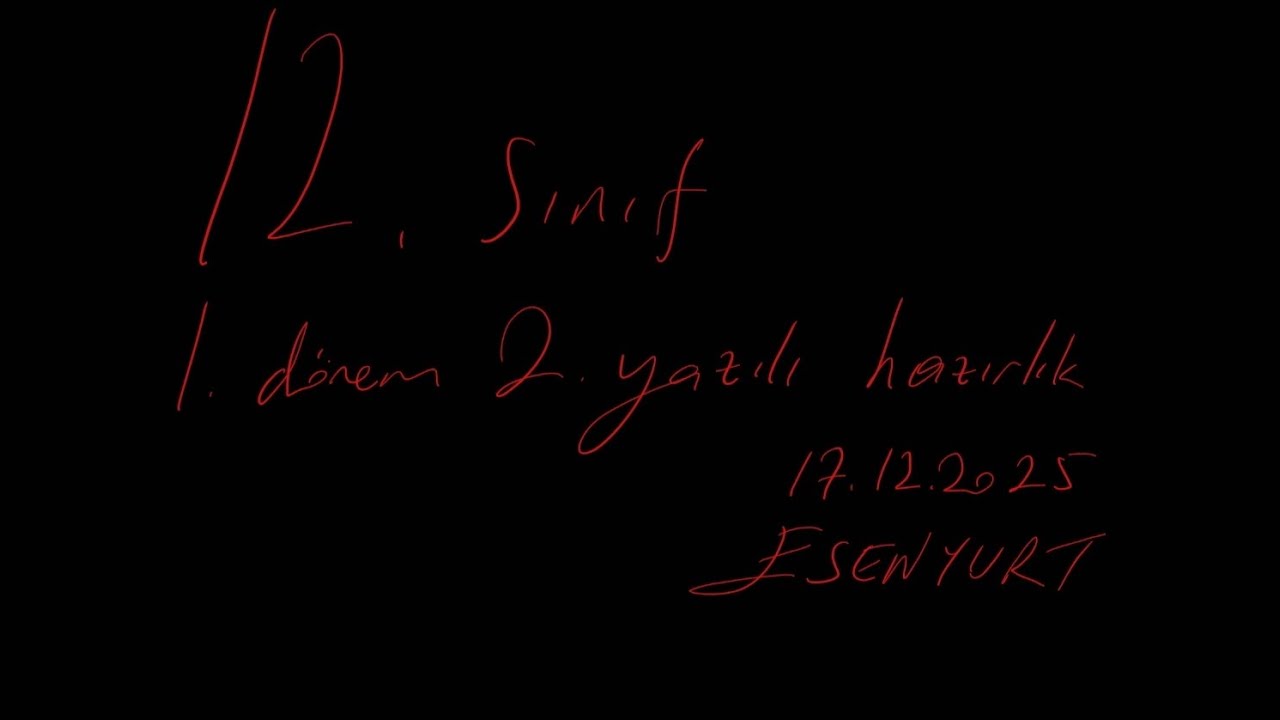 12. Sınıf
1. dönem 2. yazılı hazırlık
17.12.2025
ESENYURT